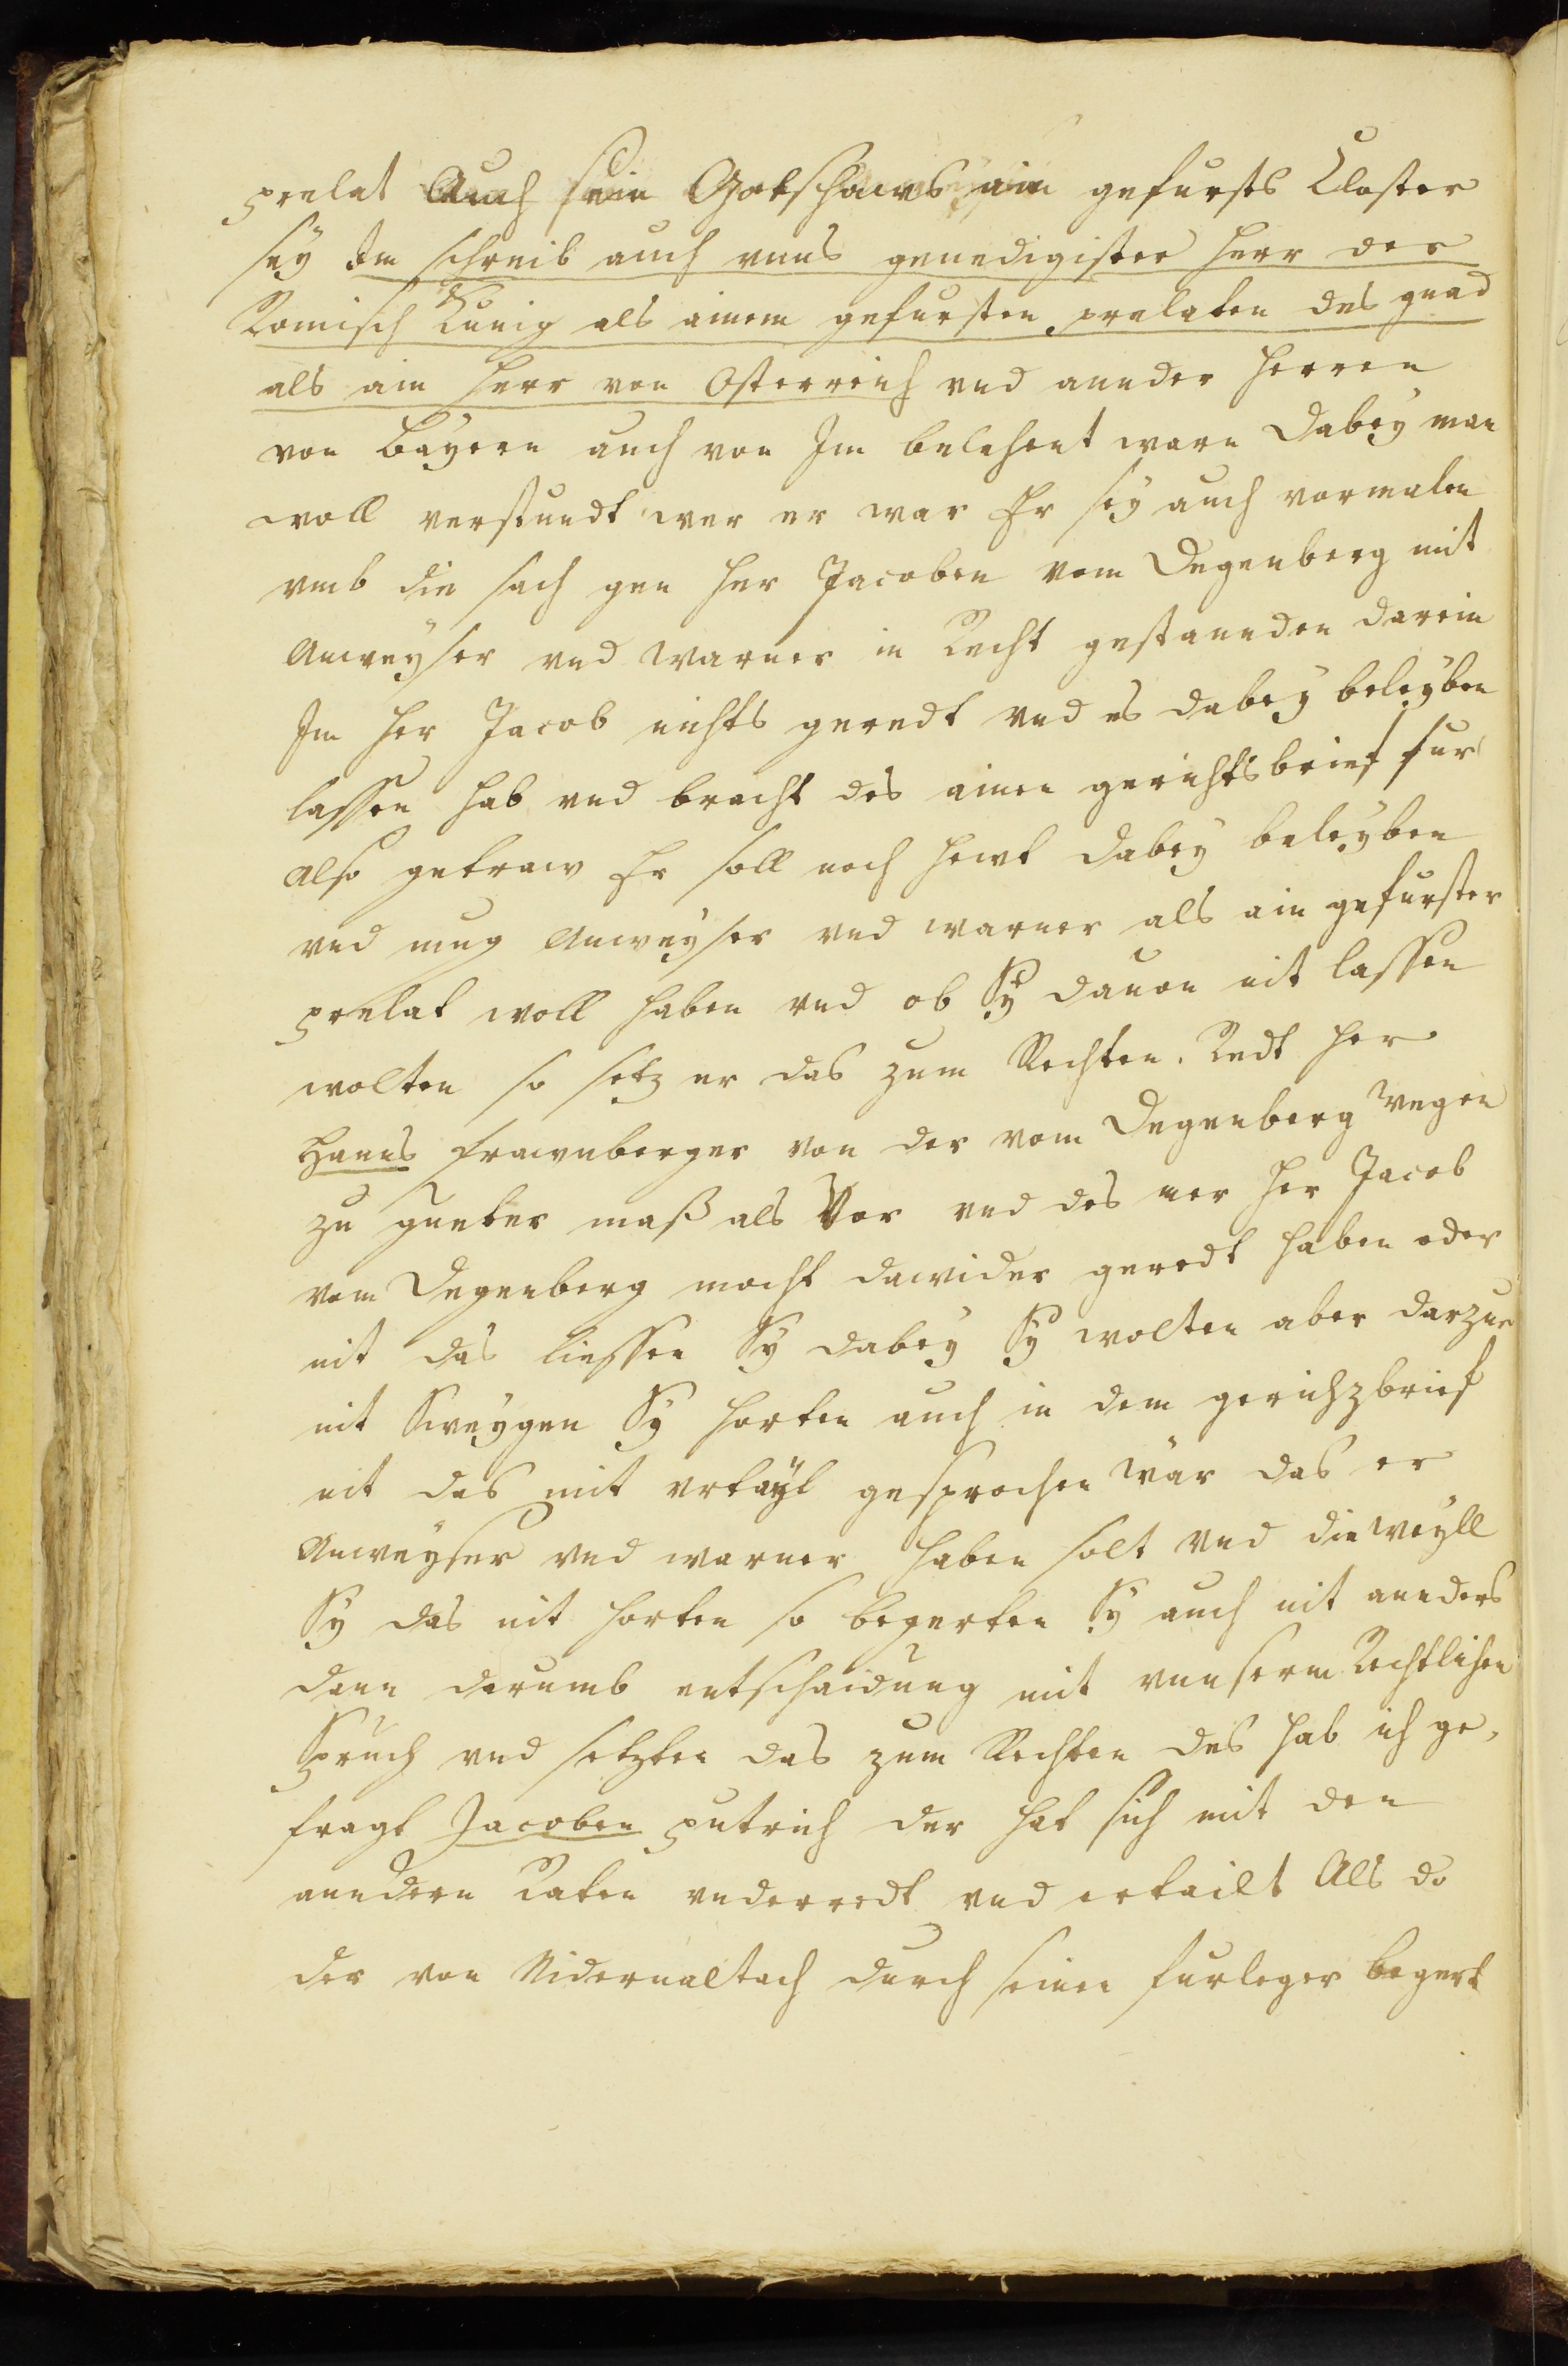 prelat Auch sein Gotshaws ain gefursts Closter
sey Im schreib auch vnns genedigister herr der
Romisch Kunig als ainem gefursten prelaten des gnad
als ain herr von Osterreich vnd annder herren
von Bayern auch von Im belehent warn Dabey man
woll verstundt wer er war Er sey auch vormalen
vmb die sach gen her Jacoben vom Degenberg mit
Anweyser vnd warner in Recht gestannden darein
Im her Jacob nichts geredt vnd es dabey beleyben
lassen hab vnd bracht des ainen gerichtsbrief fur
Also getraw Er soll noch hewt dabey beleyben
vnd mug Anweyser vnd warner als ain gefurster
prelat woll haben vnd ob Sy dauon nit lassen
wolten so setz er das zum Rechten. Redt her
Hanns frawnberger von der vom Degenberg wegen
zu gueter maß als Vor vnd des ner her Jacob
vom Degenberg mocht dawider geredt haben oder
nit das liessen Sy dabey Sy wolten aber darzue
nit Sweygen Sy horten auch in dem gerichzbrief
nit das mit vrtayl gesprochen wär das er
Anweyser vnd warner haben solt vnd dieweyll
Sy das nit horten so begerten Sy auch nit annders
dann darumb entschaidung mit vnnserm Rechtlichen
Spruch vnd setzten das zum Rechten des hab ich ge,
fragt Jacoben putrich der hat sich mit den
anndern Raten vnderredt vnd ertailt Als do
der von Nidernaltach durch seinen furleger begert